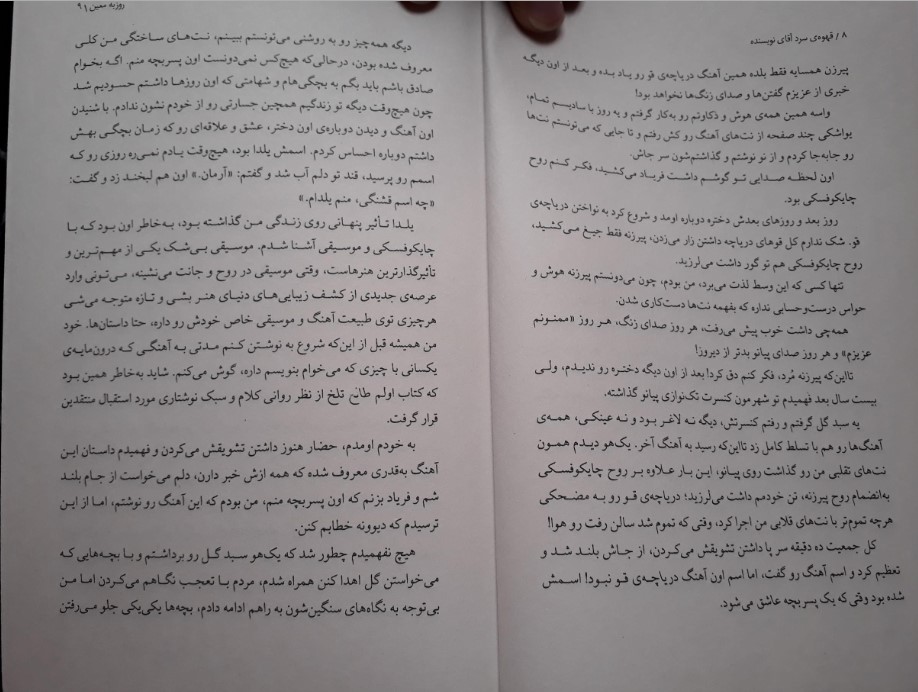 ۸ / قهوه‌ی سرد آقای نویسنده
پیرزن همسایه فقط بلده همین آهنگ دریاچه‌ی قو رو یاد بده و بعد از اون دیگه
خبری از عزیزم گفتن‌ها و صدای زنگ‌ها نخواهد بود!
واسه همین همه‌ی هوش و ذکاوتم رو به‌کار گرفتم و یه روز با سادیسم تمام،
یواشکی چند صفحه از نت‌های آهنگ رو کش رفتم و تا جایی که می‌تونستم نت‌ها
رو جابه‌جا کردم و از نو نوشتم و گذاشتم‌شون سر جاش.
اون لحظه صدایی تو گوشم داشت فریاد می‌کشید، فکر کنم روح
چایکوفسکی بود.
روز بعد و روزهای بعدش دختره دوباره اومد و شروع کرد به نواختن دریاچه‌ی
قو. شک ندارم کل قوهای دریاچه داشتن زار می‌زدن، پیرزنه فقط جیغ می‌کشید،
روح چایکوفسکی هم تو گور داشت می‌لرزید.
تنها کسی که این وسط لذت می‌برد، من بودم، چون می‌دونستم پیرزنه هوش و
حواس درست‌وحسابی نداره که بفهمه نت‌ها دست‌کاری شدن.
همه‌چی داشت خوب پیش می‌رفت، هر روز صدای زنگ، هر روز «ممنونم
عزیزم» و هر روز صدای پیانو بدتر از دیروز!
تااین‌که پیرزنه مُرد، فکر کنم دق کرد! بعد از اون دیگه دختره رو ندیدم، ولی
بیست سال بعد فهمیدم تو شهرمون کنسرت تک‌نوازی پیانو گذاشته.
یه سبد گل گرفتم و رفتم کنسرتش، دیگه نه لاغر بود و نه عینکی، همه‌ی
آهنگ‌ها رو هم با تسلط کامل زد تااین‌که رسید به آهنگ آخر. یک‌هو دیدم همون
نت‌های تقلبی من رو گذاشت روی پیانو، این بار علاوه بر روح چایکوفسکی
به‌انضمام روح پیرزنه، تن خودمم داشت می‌لرزید؛ دریاچه‌ی قو رو به مضحکی
هرچه تموم‌تر با نت‌های قلابی من اجرا کرد، وقتی که تموم شد سالن رفت رو هوا!
کل جمعیت ده دقیقه سر پا داشتن تشویقش می‌کردن، از جاش بلند شد و
تعظیم کرد و اسم آهنگ رو گفت، اما اسم اون آهنگ دریاچه‌ی قو نبود! اسمش
شده بود وقتی که یک پسربچه عاشق می‌شود.
روزبه معین / ۹
دیگه همه‌چیز رو به روشنی می‌تونستم ببینم، نت‌های ساختگی من کلی
معروف شده بودن، درحالی‌که هیچ‌کس نمی‌دونست اون پسربچه منم. اگه بخوام
صادق باشم باید بگم به بچگی‌هام و شهامتی که اون روزها داشتم حسودیم شد
چون هیچ‌وقت دیگه تو زندگیم همچین جسارتی رو از خودم نشون ندادم. با شنیدن
اون آهنگ و دیدن دوباره‌ی اون دختر، عشق و علاقه‌ای رو که زمان بچگی بهش
داشتم دوباره احساس کردم. اسمش یلدا بود، هیچ‌وقت یادم نمی‌ره روزی رو که
اسمم رو پرسید، قند تو دلم آب شد و گفتم: «آرمان.» اون هم لبخند زد و گفت:
«چه اسم قشنگی، منم یلدام.»
یلدا تأثیر پنهانی روی زندگی من گذاشته بود، به‌خاطر اون بود که با
چایکوفسکی و موسیقی آشنا شدم. موسیقی بی‌شک یکی از مهم‌ترین و
تأثیرگذارترین هنرهاست، وقتی موسیقی در روح و جانت می‌شینه، می‌تونی وارد
عرصه‌ی جدیدی از کشف زیبایی‌های دنیای هنر بشی و تازه متوجه می‌شی
هرچیزی توی طبیعت آهنگ و موسیقی خاص خودش رو داره، حتا داستان‌ها. خود
من همیشه قبل از این‌که شروع به نوشتن کنم مدتی به آهنگی که درون‌مایه‌ی
یکسانی با چیزی که می‌خوام بنویسم داره، گوش می‌کنم. شاید به‌خاطر همین بود
که کتاب اولم طالع تلخ از نظر روانی کلام و سبک نوشتاری مورد استقبال منتقدین
قرار گرفت.
به خودم اومدم، حضار هنوز داشتن تشویقش می‌کردن و فهمیدم داستان این
آهنگ به‌قدری معروف شده که همه ازش خبر دارن، دلم می‌خواست از جام بلند
شم و فریاد بزنم که اون پسربچه منم، من بودم که این آهنگ رو نوشتم، اما از این
ترسیدم که دیوونه خطابم کنن.
هیچ نفهمیدم چطور شد که یک‌هو سبد گل رو برداشتم و با بچه‌هایی که
می‌خواستن گل اهدا کنن همراه شدم، مردم با تعجب نگاهم می‌کردن اما من
بی‌توجه به نگاه‌های سنگین‌شون به راهم ادامه دادم، بچه‌ها یکی‌یکی جلو می‌رفتن